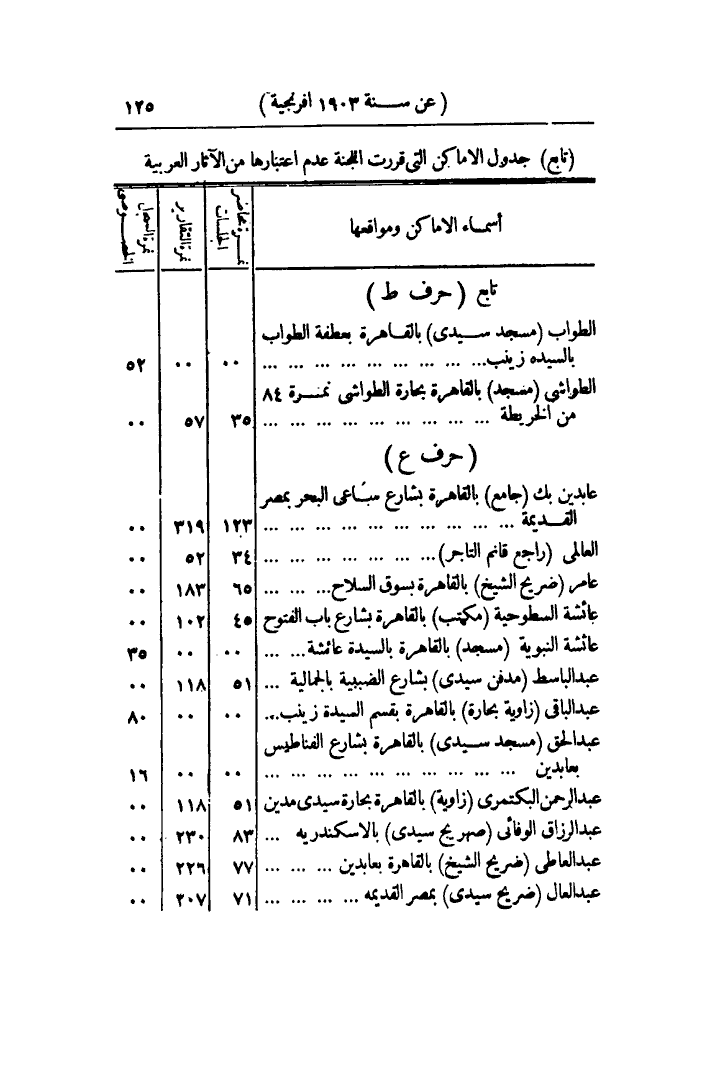 (عن سنة ١٩٠٣ افرنجية) ١٢٥
(تابع) جدول الاماكن التى قررت اللجنة عدم اعتبارها من الآثار العربية
أسماء الاماكن ومواقعها | نمرة محاضر الجلسات | نمرة التقارير | نمرة السجل الخصوصى
تابع (حرف ط)
الطواب (مسجد سيدى) بالقاهرة بعطفة الطواب
بالسيده زينب... ... ... ... ... ... ... ... ... | ٠٠ | ٠٠ | ٥٢
الطواشى (مسجد) بالقاهرة بحارة الطواشى نمرة ٨٤
من الخريطة ... ... ... ... ... ... ... ... ... | ٣٥ | ٥٧ | ٠٠
(حرف ع)
عابدين بك (جامع) بالقاهرة بشارع سباعى البحر بمصر
القديمة ... ... ... ... ... ... ... ... ... ... | ١٢٣ | ٣١٩ | ٠٠
العالمى (راجع قانم التاجر)... ... ... ... ... ... ... | ٣٤ | ٥٢ | ٠٠
عامر (ضريح الشيخ) بالقاهرة بسوق السلاح... ... ... | ٦٥ | ١٨٣ | ٠٠
عائشة السطوحية (مكتب) بالقاهرة بشارع باب الفتوح | ٤٥ | ١٠٢ | ٠٠
عائشة النبوية (مسجد) بالقاهرة بالسيدة عائشة... ... ... | ٠٠ | ٠٠ | ٣٥
عبدالباسط (مدفن سيدى) بشارع الضببية بالجمالية ... | ٥١ | ١١٨ | ٠٠
عبدالباقى (زاوية بحارة) بالقاهرة بقسم السيدة زينب... | ٠٠ | ٠٠ | ٨٠
عبدالحق (مسجد سيدى) بالقاهرة بشارع الفناطيس
بعابدين ... ... ... ... ... ... ... ... ... ... | ٠٠ | ٠٠ | ١٦
عبدالرحمن البكتمرى (زاوية) بالقاهرة بحارة سيدى مدين | ٥١ | ١١٨ | ٠٠
عبدالرزاق الوفائى (صهريج سيدى) بالاسكندريه ... | ٨٣ | ٢٣٠ | ٠٠
عبدالعاطى (ضريح الشيخ) بالقاهرة بعابدين ... ... ... | ٧٧ | ٢٢٦ | ٠٠
عبدالعال (ضريح سيدى) بمصر القديمه ... ... ... ... | ٧١ | ٢٠٧ | ٠٠